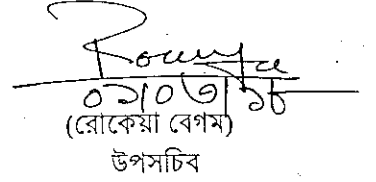 ০১/০৩/১৮
(রোকেয়া বেগম)
উপসচিব